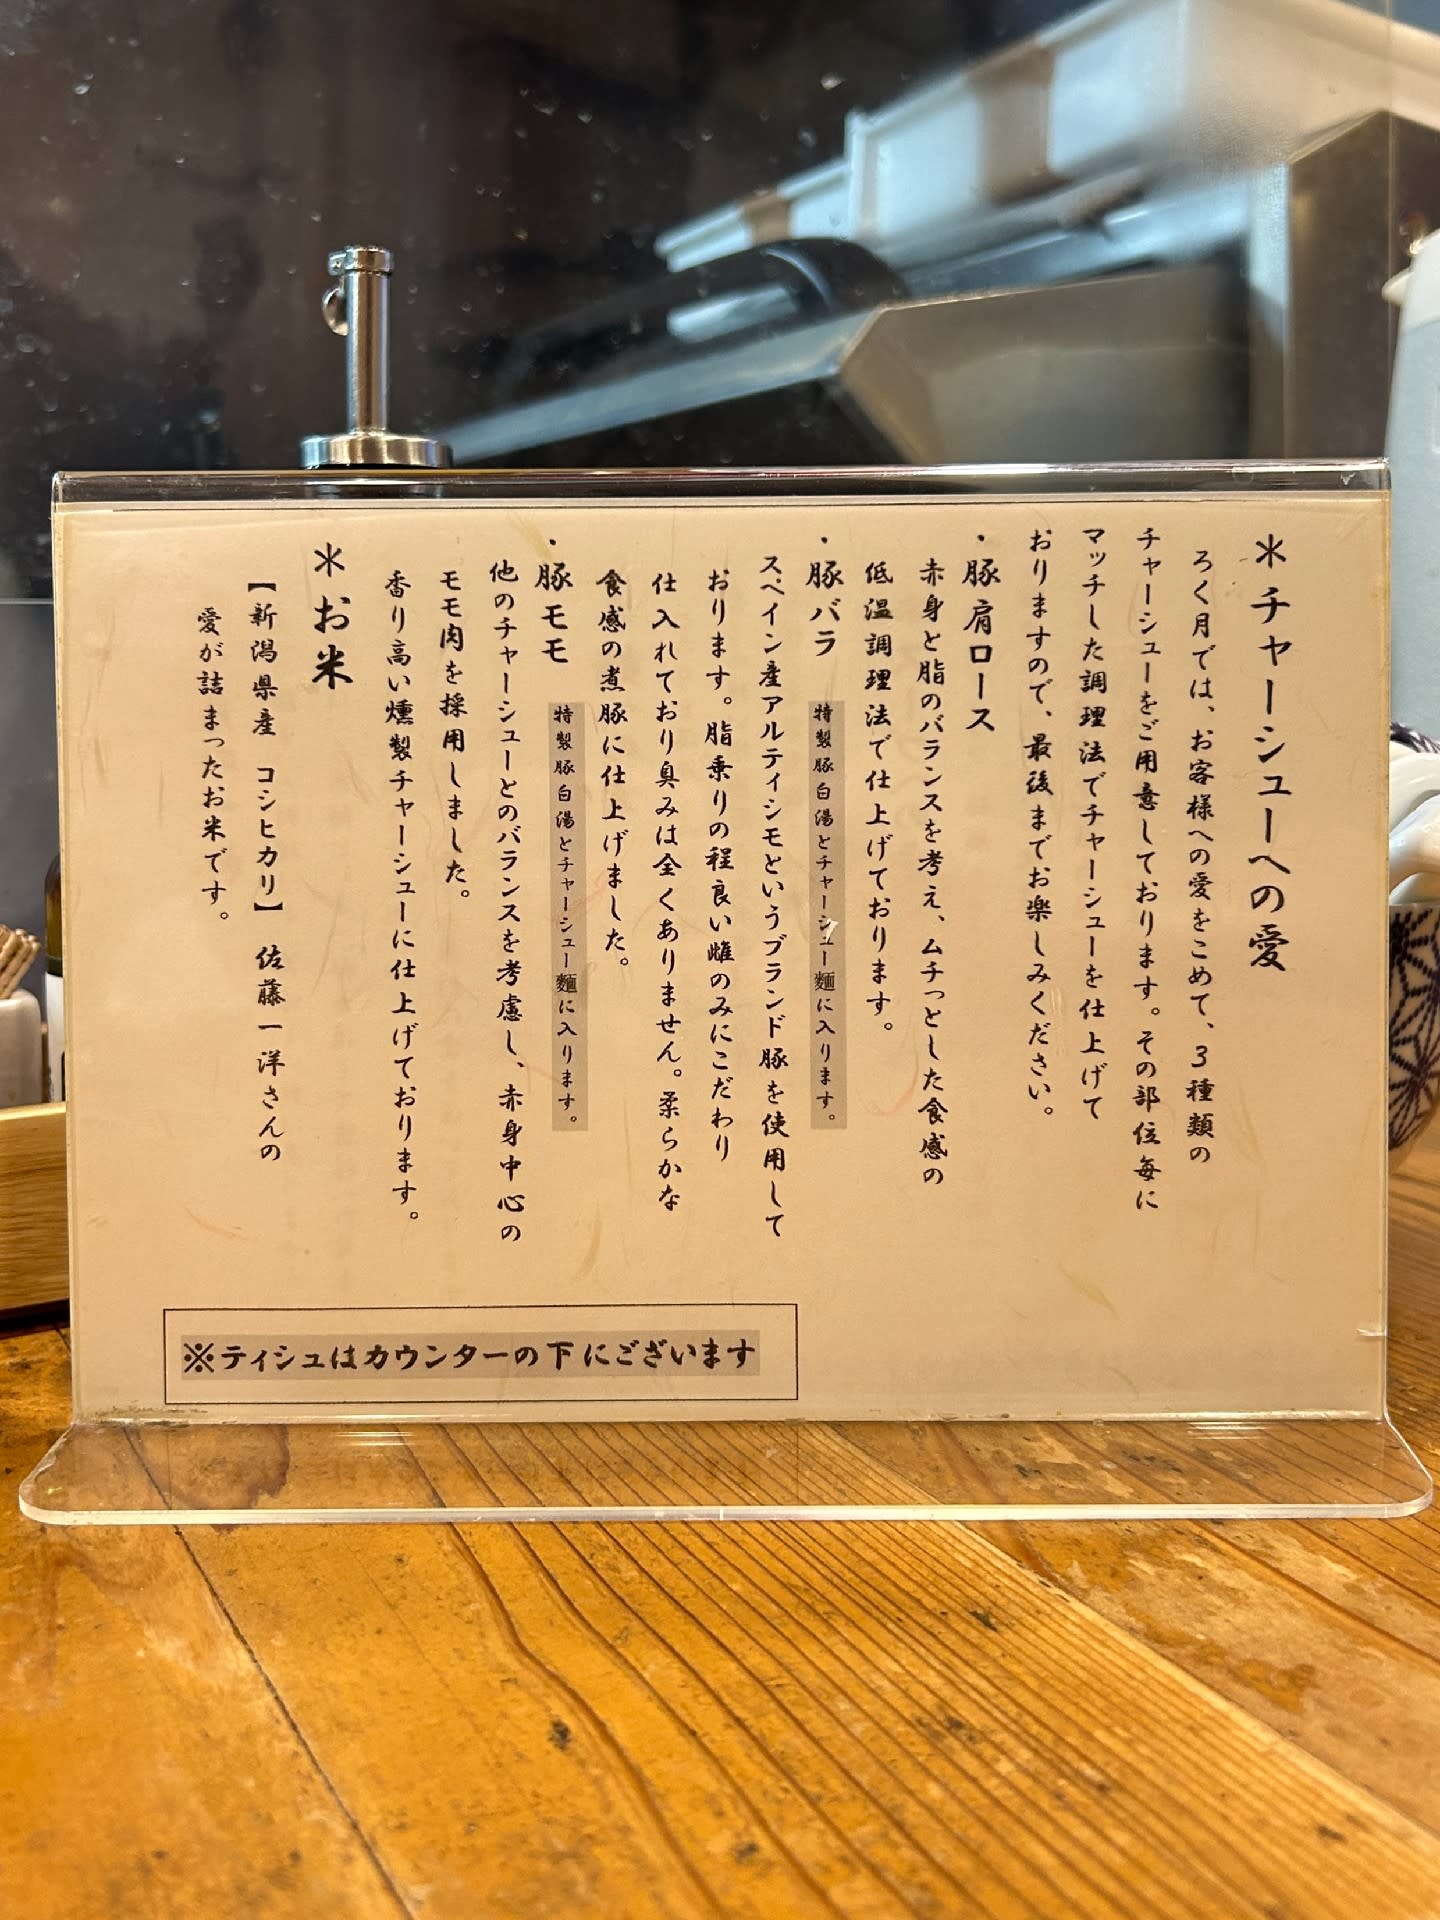 ＊チャーシューへの愛
ろく月では、お客様への愛をこめて、３種類の
チャーシューをご用意しております。その部位毎に
マッチした調理法でチャーシューを仕上げて
おりますので、最後までお楽しみください。
・豚肩ロース
赤身と脂のバランスを考え、ムチっとした食感の
低温調理法で仕上げております。
・豚バラ　特製豚白湯とチャーシュー麺に入ります。
スペイン産アルティシモというブランド豚を使用して
おります。脂乗りの程良い雌のみにこだわり
仕入れており臭みは全くありません。柔らかな
食感の煮豚に仕上げました。
・豚モモ　特製豚白湯とチャーシュー麺に入ります。
他のチャーシューとのバランスを考慮し、赤身中心の
モモ肉を採用しました。
香り高い燻製チャーシューに仕上げております。
＊お米
【新潟県産　コシヒカリ】　佐藤一洋さんの
愛が詰まったお米です。
※ティシュはカウンターの下にございます